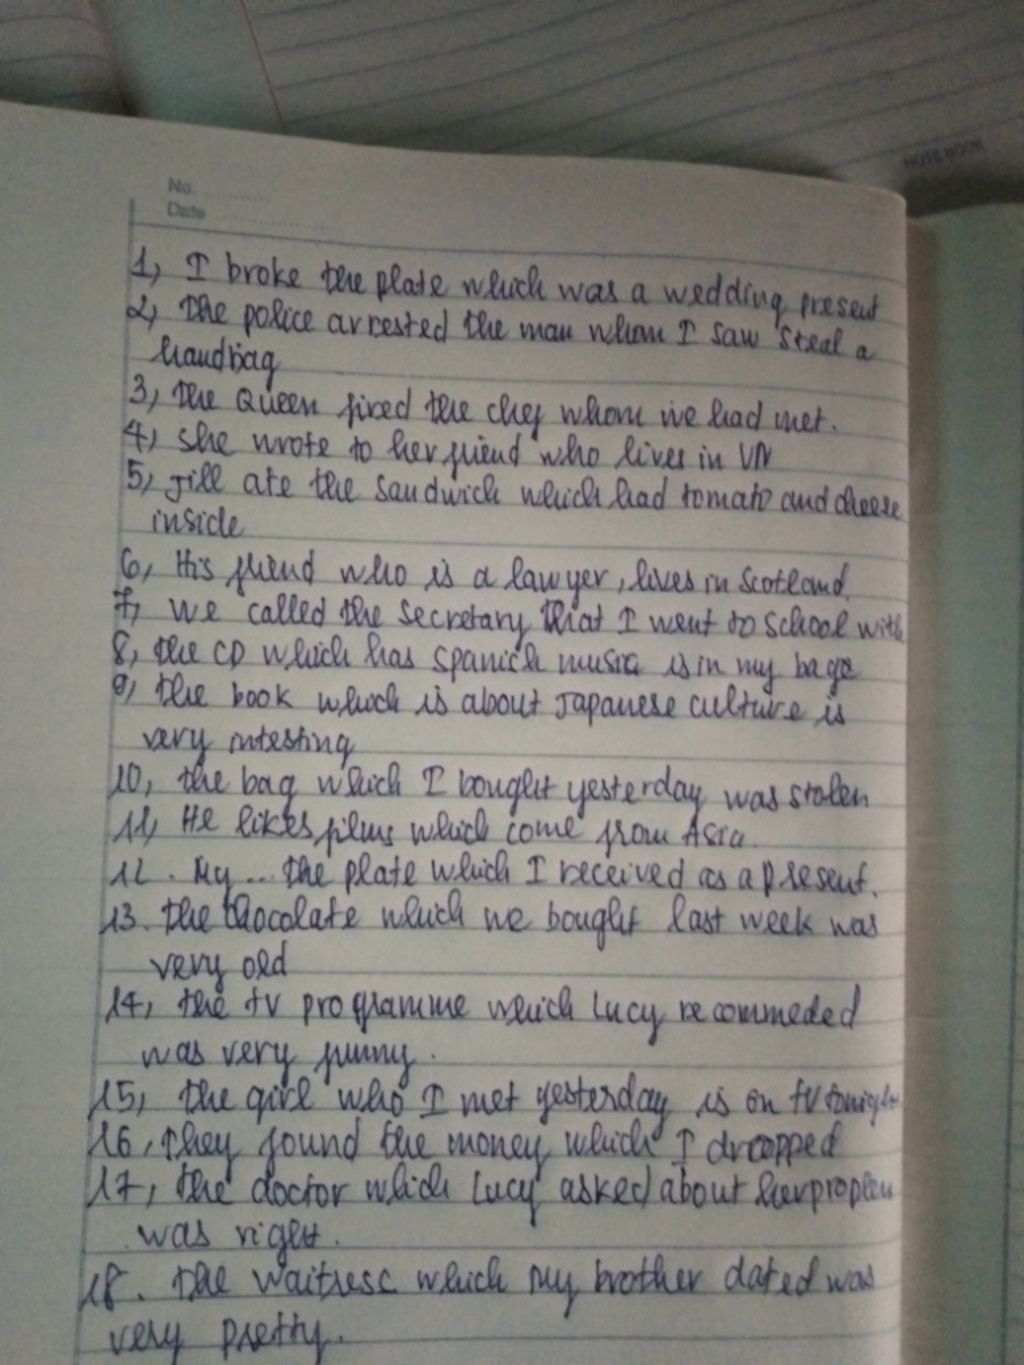 NOTE BOOK
No.
Date
1, I broke the plate which was a wedding present
2, The police arrested the man whom I saw steal a
handbag
3, The Queen fired the chef whom we had met.
4, She wrote to her friend who lives in VN
5, Jill ate the sandwich which had tomato and cheese
inside
6, His friend who is a lawyer, lives in Scotland.
7, We called the secretary that I went to school with
8, the CD which has spanich music is in my bage
9, the book which is about Japanese culture is
very intesting
10, the bag which I bought yesterday was stolen
11, He likes films which come from Asia.
12. My ... the plate which I received as a present.
13. the chocolate which we bought last week was
very old
14, the tv programme which Lucy recommeded
was very funny.
15, the girl who I met yesterday is on tv tonight
16, They found the money which I dropped
17, the doctor which Lucy asked about her proplem
was right.
18. the waitress which my brother dated was
very pretty.